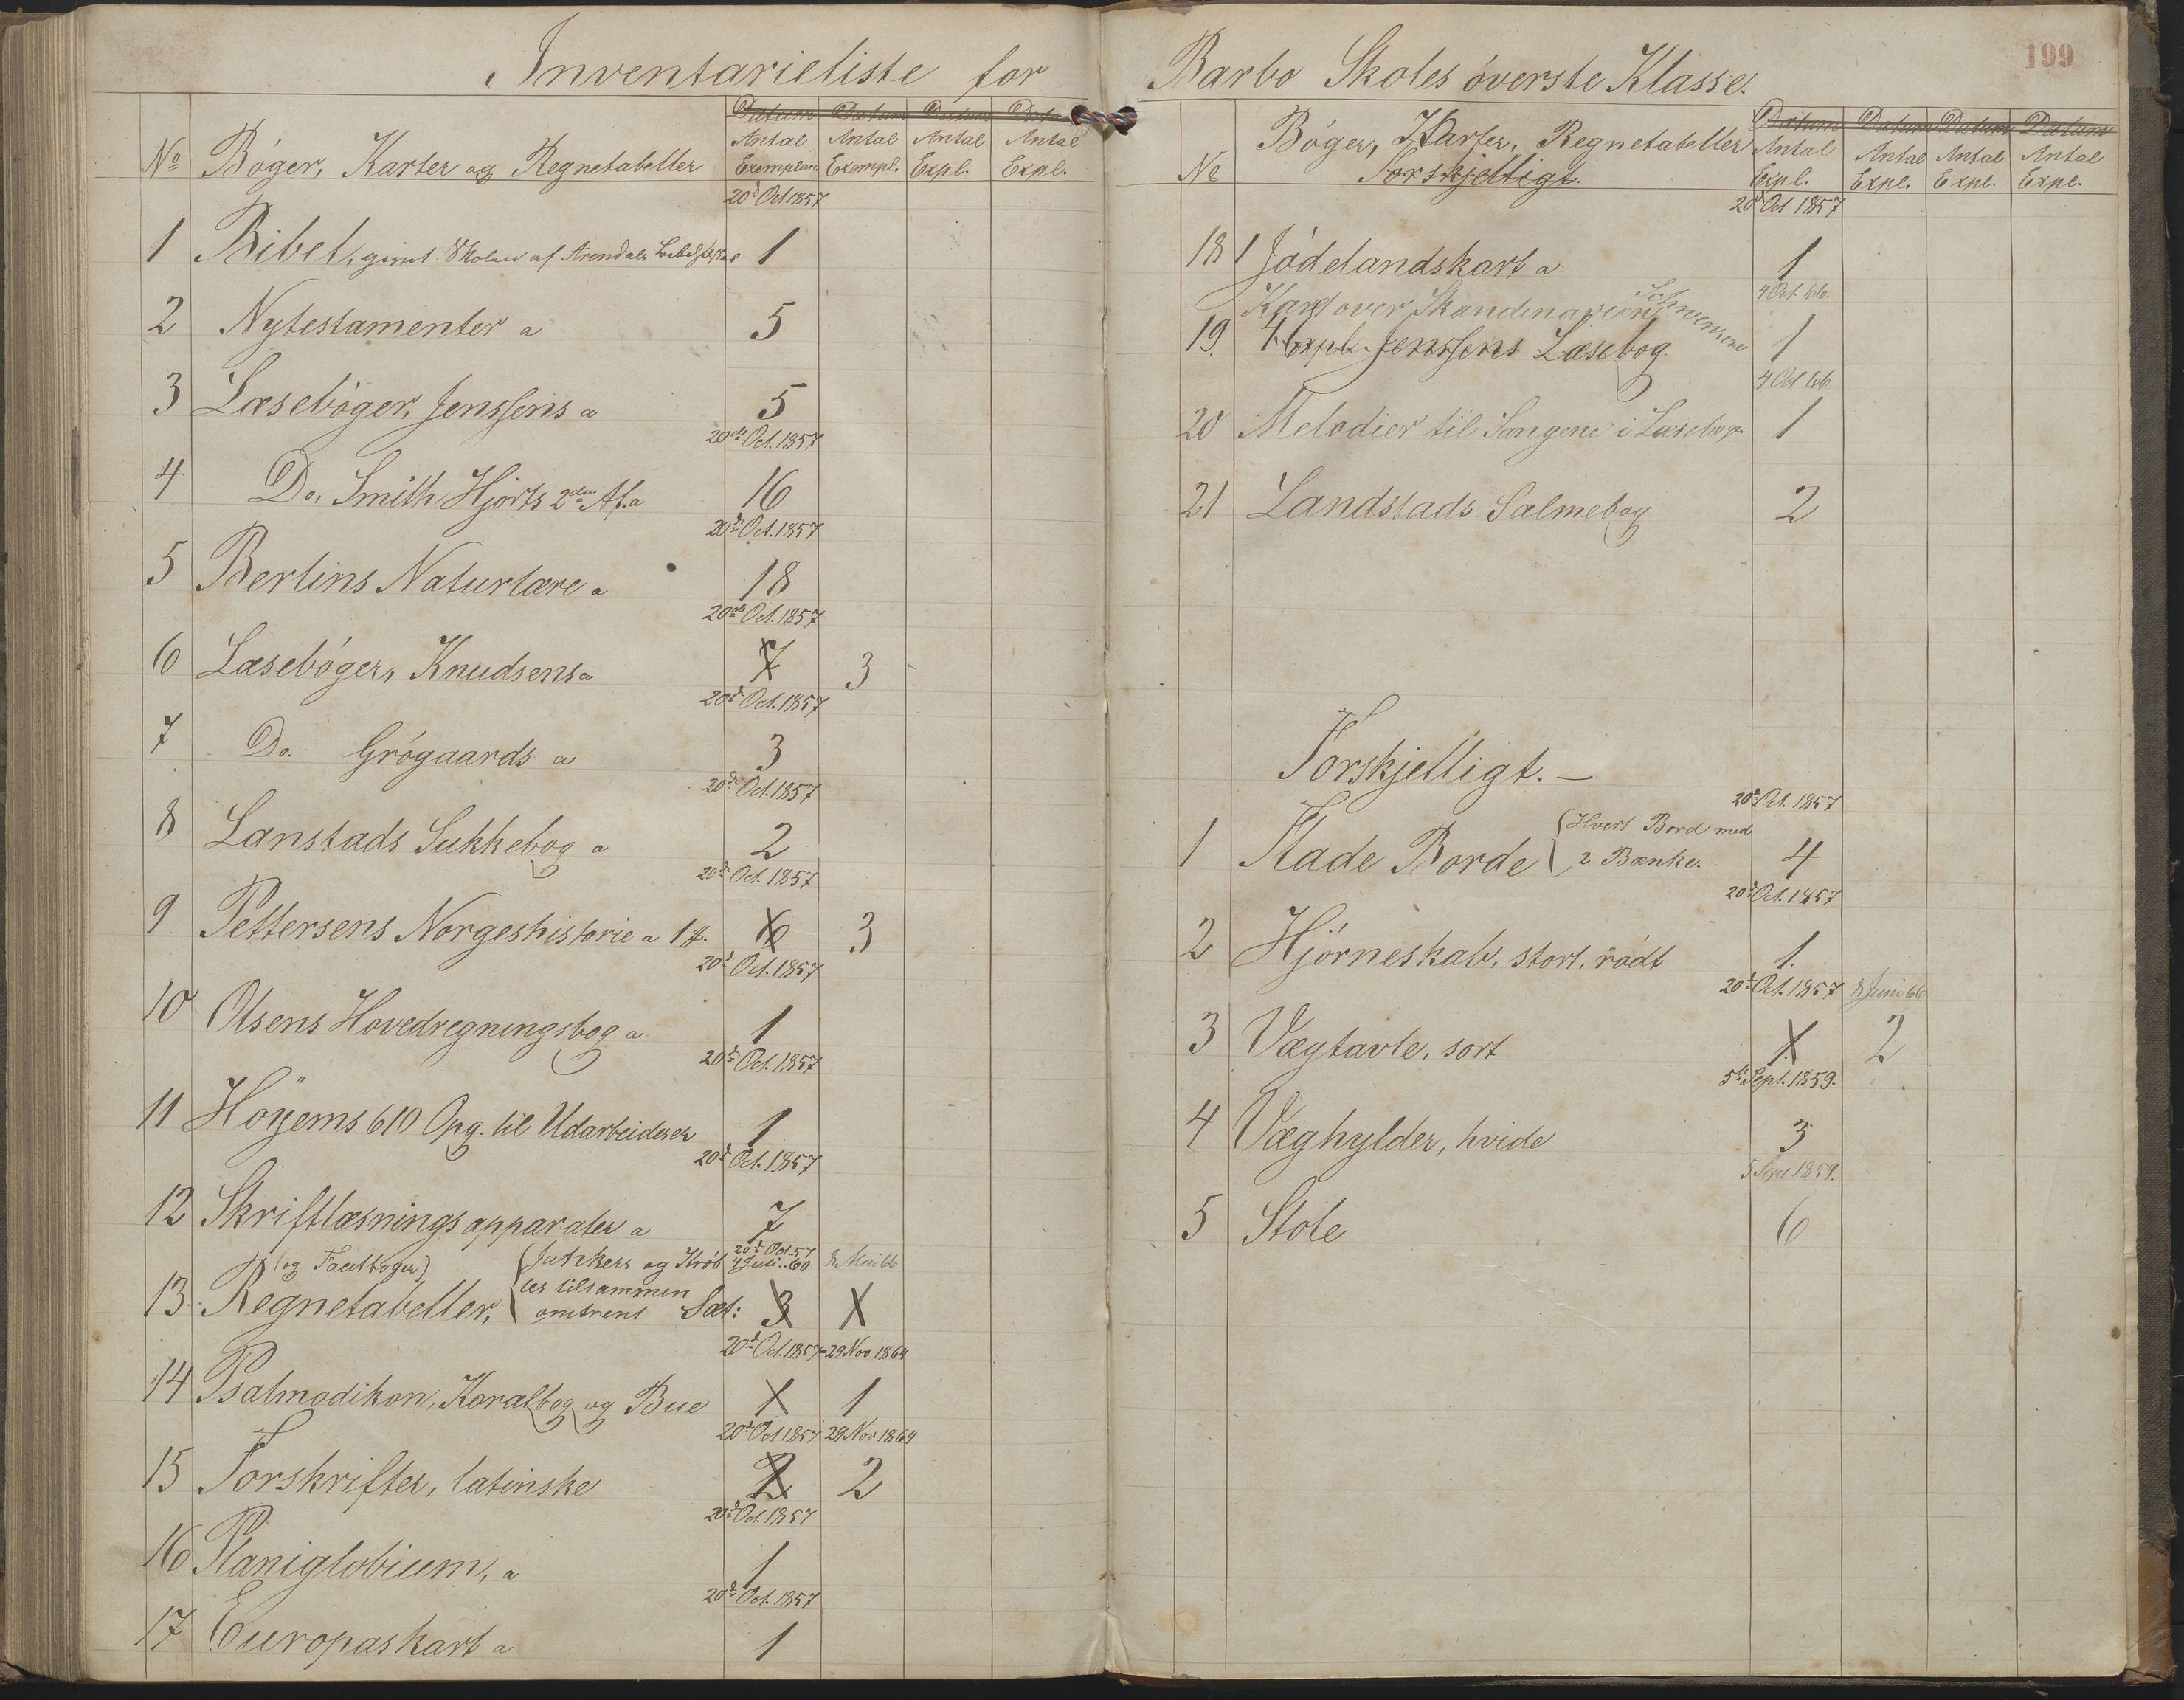 Inventarieliste for
Datum Datum Datum Dat
Antal Antal Antal Antal
No Bøger, Karter og Regnetabeller Exemplarer Exempl. Expl. Expl.
20d Oct 1857
1 Bibel, givet Skolen af Arendals 1
2 Nytestamenter a 5
3 Læsebøger, Jenssens a 5
20de Oct. 1857
4 Do. Smith Hjorts 2den Af. a 16
20d Oct. 1857
5 Berlins Naturlære a 18
20de Oct. 1857
6 Læsebøger, Knudsens a 7 3
20d Oct. 1857
7 Do. Grøgaards a 3
20d Oct. 1857
8 Lanstads Sukkebog a 2
20d Oct. 1857
9 Pettersens Norgeshistorie a 1 6 3
20d Oct. 1857
10 Olsens Hovedregningsbog a 1
20d Oct. 1857
11 Høyems 610 Opg. til Udarbeidelser 1
20d Oct. 1857
12 Skriftlæsningsapparater a 7
20d Oct. 57
(og Facitbøger) (Juhkers og Krøb 4 Juli 60 8 Mai 66
les tilsammen
13. Regnetabeller, omtrent Sæt: 3 X
20d Oct. 1857 29 Nov 1864
14 Psalmodikon, Koralbog og Bue 1 1
20d Oct 1857 29 Nov 1864
15 Forskrifter, latinske 2 2
20d Oct. 1857
16 Planiglobium, a 1
20d Oct. 1857
17 Europaskart a 1
199
Barbo Skoles øverste Klasse.
Datum Datum Datum Datum
Bøger, Karter, Regnetabeller Antal Antal Antal Antal
No Forskjelligt. Expl. Expl. Expl. Expl.
20d Oct 1857
18 1 Jødelandskart a 1
4 Oct. 66.
Kart over Skandinavien
19. 4 Expl. Jenssens Læsebog. 1
4 Oct 66
20 Melodier til Sangene i Læsebogen 1
21 Landstads Salmebog 2
Forskjelligt. —
20d Oct. 1857
1 Flade Borde (Hvert Bord med 2 Bænke. 4
20d Oct. 1857
2 Hjørneskab, stort, rødt 1.
20d Oct. 1857 8 Juni 66
3 Vægtavle, sort 1 2
5te Sept. 1859.
4 Væghylder, hvide 3
5 Sept 1859.
5 Stole 6